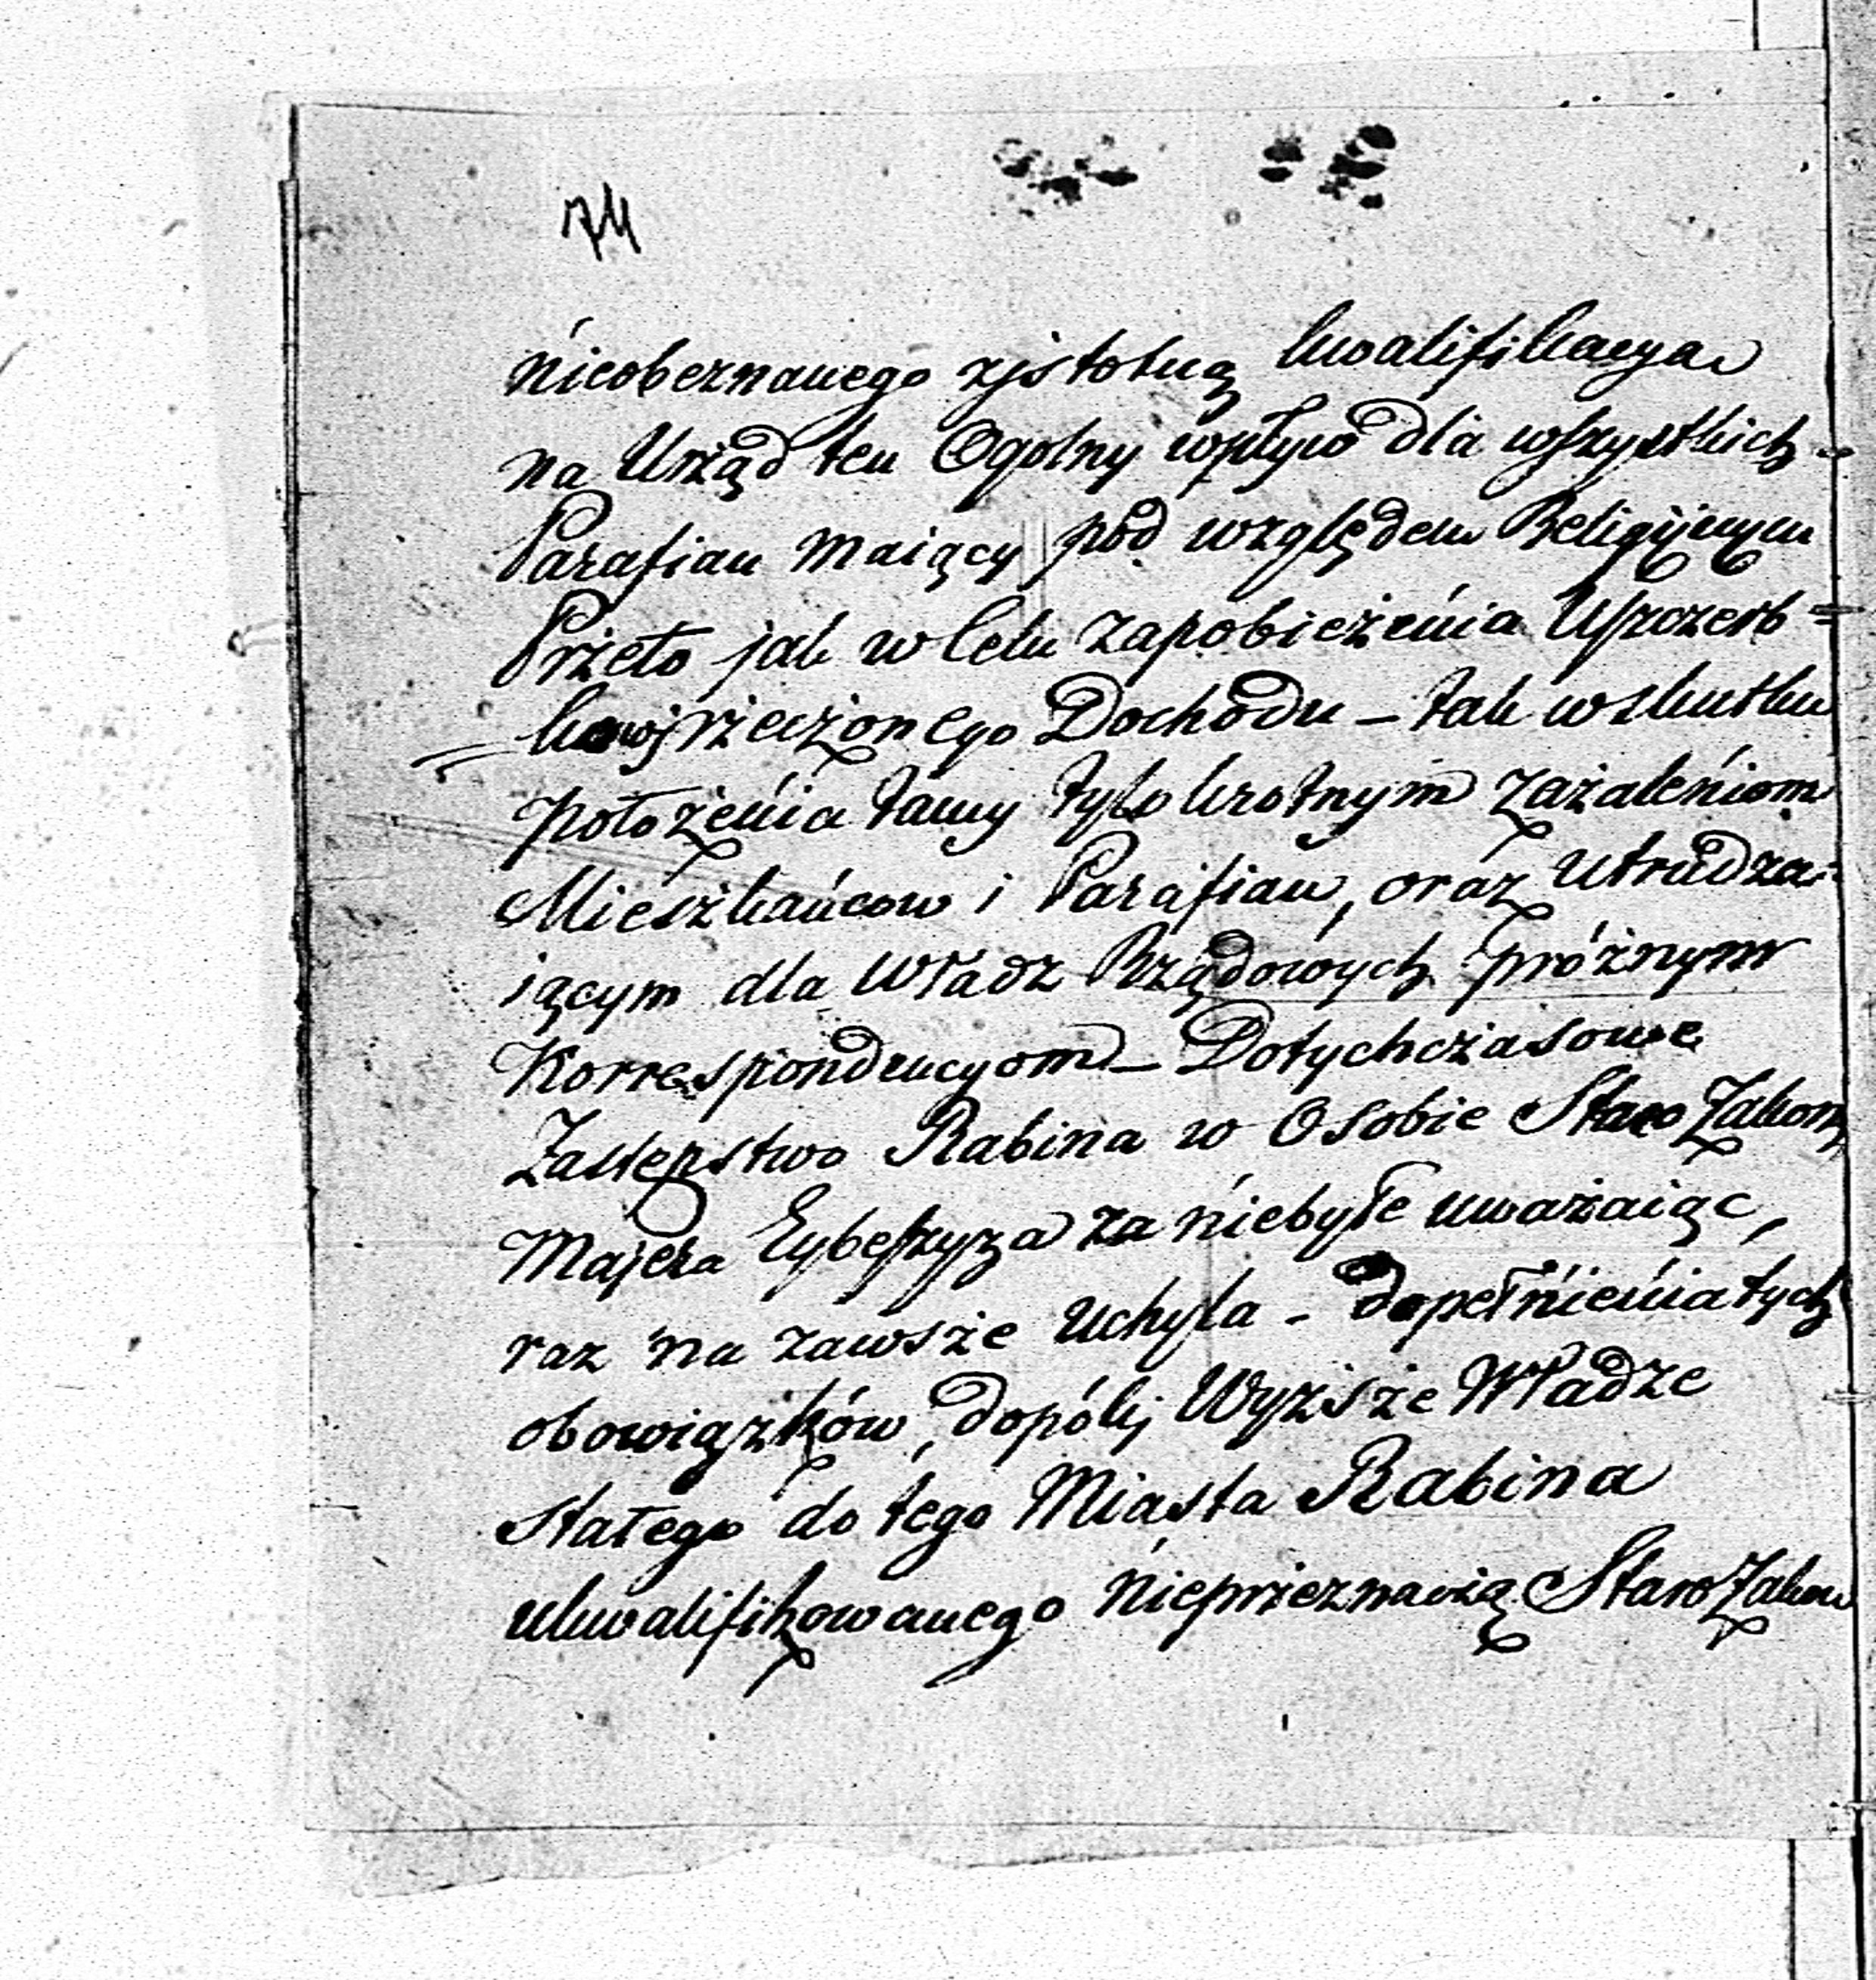 74
nieobeznanego zistotną kwalifikacyą
na Urząd ten Ogolny wpływ dla wszystkich
Parafian maiący pod względem Religijnym
Przeto jak w Celu zapobieżenia Uszczerb=
=kowj rzeczonego Dochodu – tak wskutku
położenia tamy tylokrotnym zażaleniom
Mieszkańcow i Parafian, oraz utrudza=
iącym dla Władz Rządowych próżnym
Korrespondencyom – Dotychczasowe
Zastępstwo Rabina w Osobie Staro Zakon
Majera Eybeszyza za niebyłe uważaiąc,
raz na zawsze uchyla – dopełnienia tych
obowiązków, dopókj Wyższe Władze
stałego do tego Miasta Rabina
ukwalifikowanego nieprzeznaczą Staro Zakon